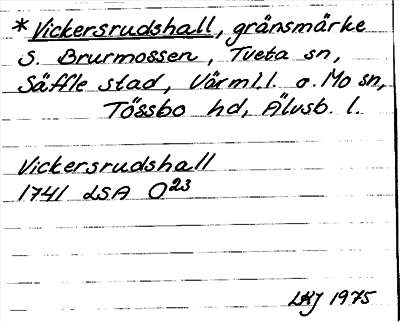 *Vickersrudshall, gränsmärke
S. Brurmossen, Tveta sn,
Säffle stad, Värml.l. o. Mo sn,
Tössbo hd, Älvsb. l.
Vickersrudshall
1741 LSA O23
LHJ 1975